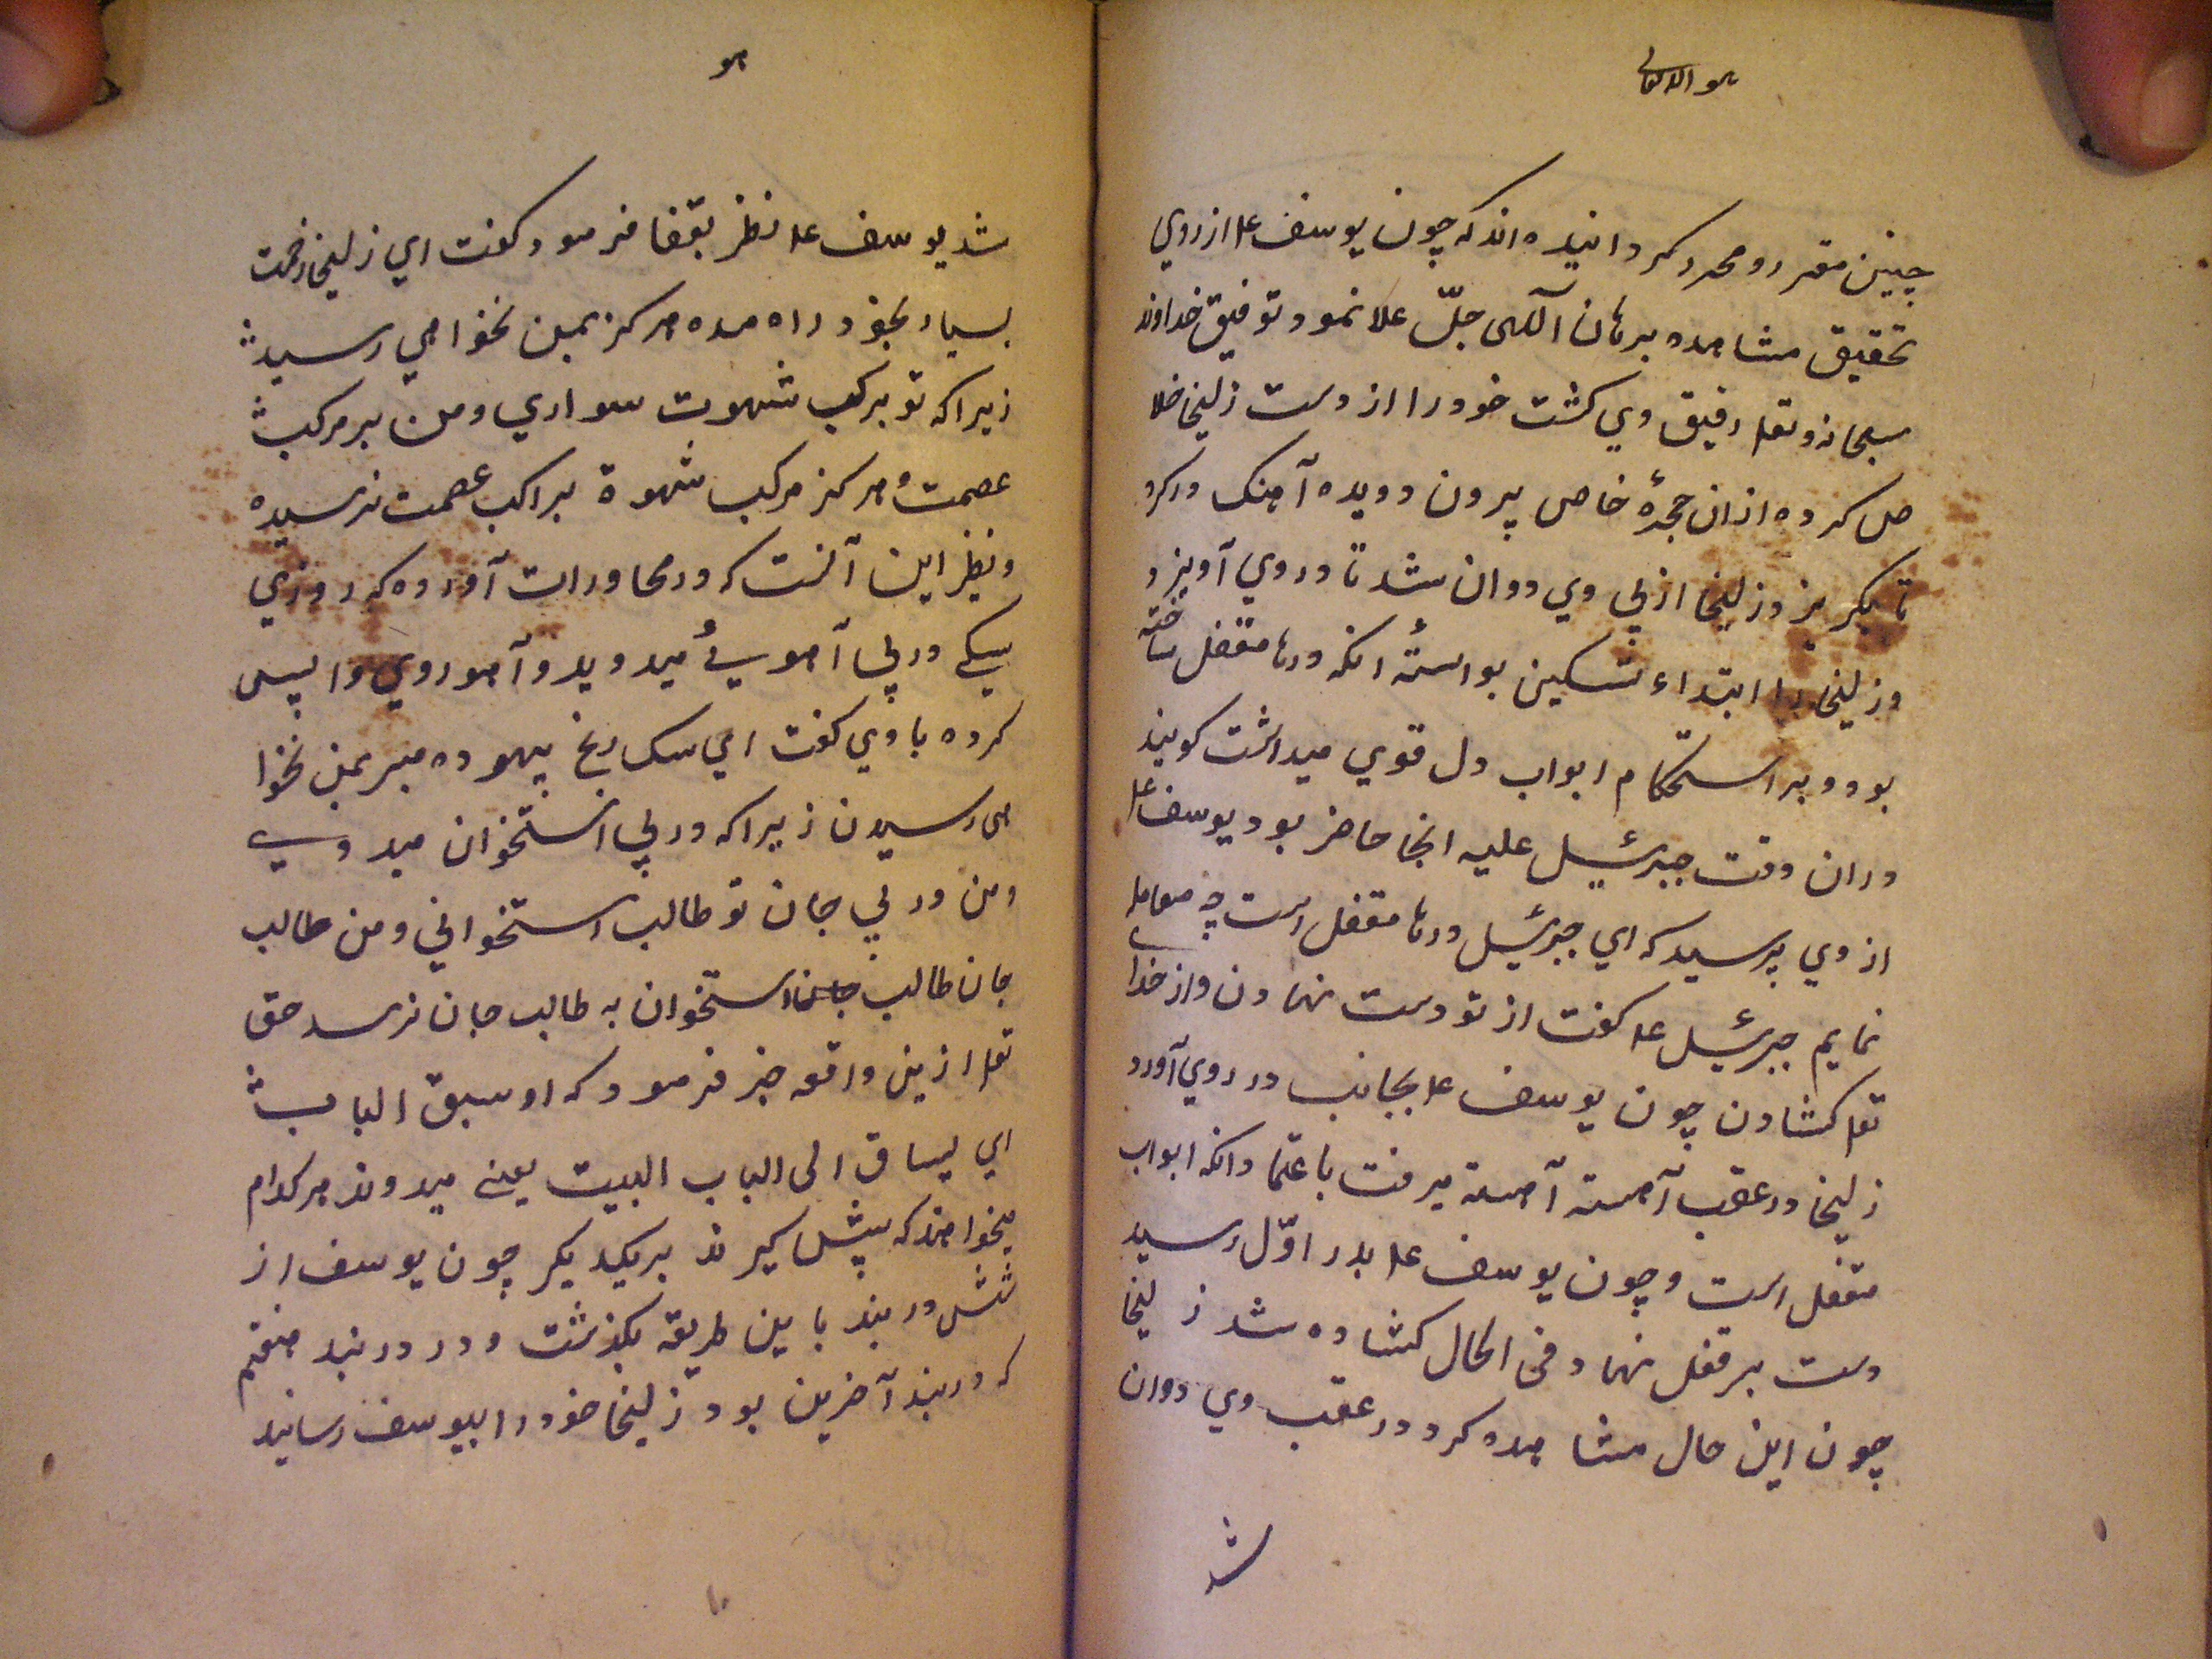 هو الله تعالی
چنین مقرر و محرر کردانیده اند که چون یوسف ع از روی
تحقیق مشاهده برهان آلهی جلّ علا نمود و توفیق خداوند
سبحانه و تعا رفیق وی کشت خود را از دست زلیخا خلا
ص کرده از ان حجرهٔ خاص بیرون دویده آهنک در کرد
تا بکریزد و زلیخا از پی وی دوان شد تا در وی آویزد
و زلیخا را ابتداء تسکین بواسطهٔ انکه درها مقفل ساخته
بود و به استحکام ابواب دل قوی میداشت کویند
دران وقت جبرئیل علیه انجا حاضر بود یوسف ع
از وی پرسید که ای جبرئیل درها مقفل است چه معامله
نمایم جبرئیل ع کفت از تو دست نهادن و از خدای
تعا کشادن چون یوسف ع بجانب در روی آورد
زلیخا در عقب آهسته آهسته میرفت باعتماد انکه ابواب
مقفل است و چون یوسف ع بدر اوّل رسید
دست بر قفل نهاد فی الحال کشاده شد زلیخا
چون این حال مشاهده کرد در عقب وی دوان
شد
هو
شد یوسف ع نظر بقفا فرمود کفت ای زلیخا زحمت
بسیار بخود راه مده هرکز بمن نخواهی رسید
زیرا که تو برکب شهوت سواری و من بر مرکب
عصمت و هرکز مرکب شهوة براکب عصمت نرسیده
و نظیر این آنست که در محاورات آورده که روزی
سکی در پی آهویی میدوید و آهو روی واپس
کرده با وی کفت ای سک رنج بیهوده مبر بمن نخوا
هی رسیدن زیرا که در پی استخوان میدویی
و من در پی جان تو طالب استخوانی و من طالب
جان طالب استخوان به طالب جان نرسد حق
تعا ازین واقعه خبر فرمود که او سبق الباب
ای لیساق الی الباب البیت یعنے میدوند هرکدام
میخواهند که پیش کیرند بر یکدیکر چون یوسف از
شش دربند باین طریقه بکذشت و در دربند هفتم
که دربند آخرین بود زلیخا خود را بیوسف رسانید